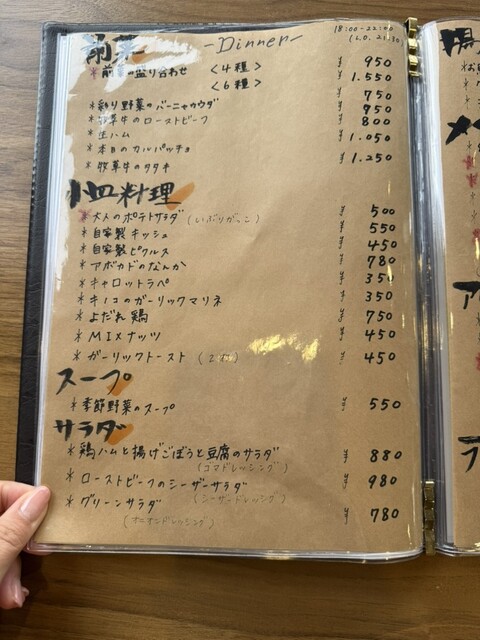 前菜 -Dinner- 18:00-22:00
(L.O. 21:30)
*前菜の盛り合わせ <4種> ¥950
<6種> ¥1.550
*彩り野菜のバーニャカウダ ¥750
*牧草牛のローストビーフ ¥950
*生ハム ¥800
*本日のカルパッチョ ¥1.050
*牧草牛のタタキ ¥1.250
小皿料理
*大人のポテトサラダ (いぶりがっこ) ¥500
*自家製キッシュ ¥550
*自家製ピクルス ¥450
*アボカドのなんか ¥780
*キャロットラペ ¥350
*キノコのガーリックマリネ ¥350
*よだれ鶏 ¥750
*MIXナッツ ¥450
*ガーリックトースト ¥450
スープ
*季節野菜のスープ ¥550
サラダ
*鶏ハムと揚げごぼうと豆腐のサラダ ¥880
(ゴマドレッシング)
*ローストビーフのシーザーサラダ ¥980
(シーザードレッシング)
*グリーンサラダ ¥780
(オニオンドレッシング)